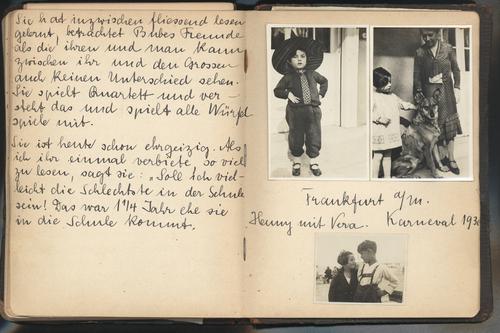 Sie hat inzwischen fliessend lesen
gelernt, betrachtet Bubes Freunde
als die ihren und man kann
zwischen ihr und den Grossen
auch keinen Unterschied sehen.
Sie spielt Quartett und ver-
steht das und spielt alle Würfel
spiele mit.
Sie ist heute schon ehrgeizig. Als
ich ihr einmal verbiete so viel
zu lesen, sagt sie: „Soll ich viel-
leicht die Schlechtste in der Schule
sein! Das war 1¼ Jahr ehe sie
in die Schule kommt.
Frankfurt a/m.
Henny mit Vera. Karneval